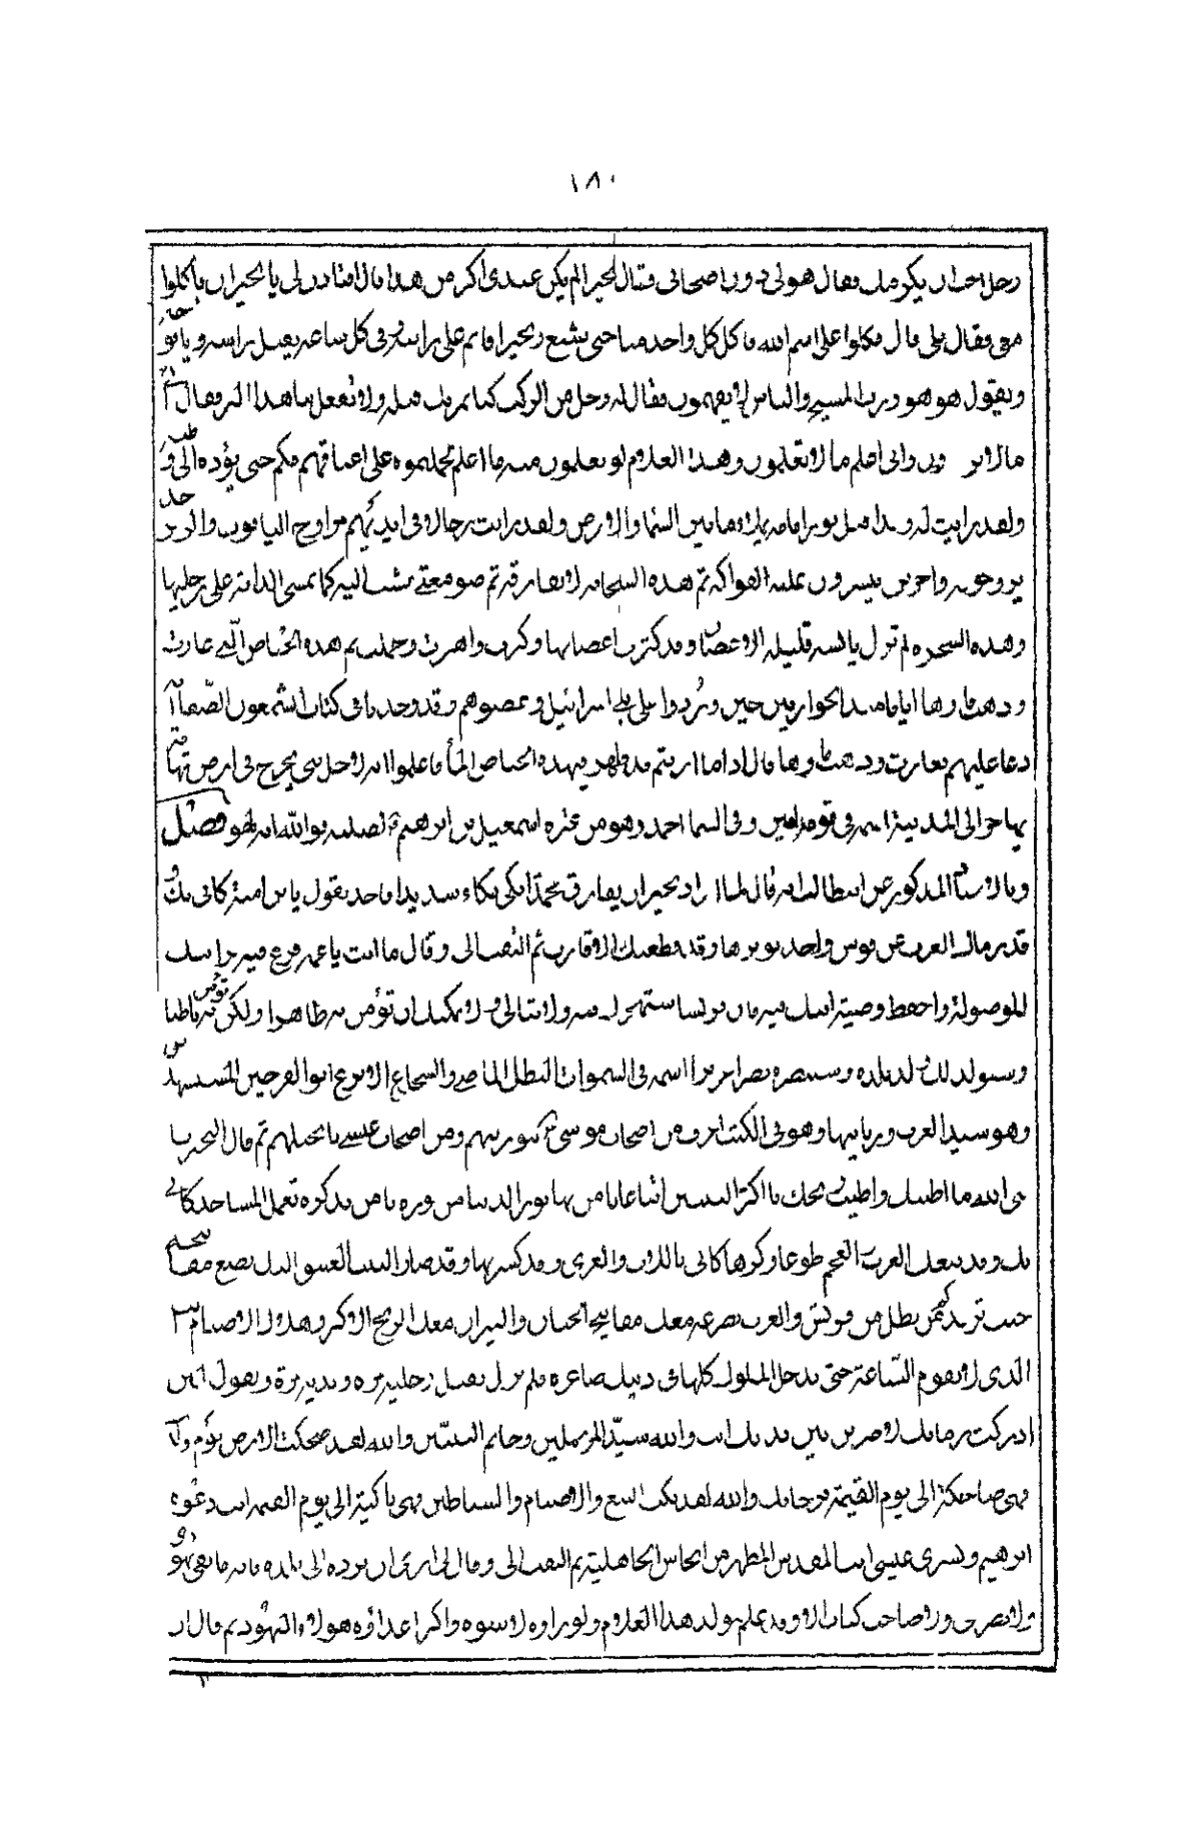 ١٨٠
رجل احب ان يكرمك فقال هو لي دون اصحابي فقال بحيرا لم يكن عندي اكثر من هذا قال افتأذن لي يا بحيرا ان ياكلوا
معي فقال بلى قال فكلوا على اسم الله فاكل كل واحد منا حتى شبع وبحيرا قائم على راسه في كل ساعة يقبل راسه ويافوخه
ويقول هو هو ورب المسيح والناس لا يفهمون فقال له رجل من الركب كنا نمر بك قبله ولا تفعل بنا هذا البر فقال
والله اني لارى ما لا ترون واني اعلم ما لا تعلمون وهذا الغلام لو تعلمون منه ما اعلم لحملتموه على اعناقكم حتى تردوه الى وطنه
ولقد رايت له وقد اقبل نورا امامه ما بين السماء والارض ولقد رايت رجالا في ايديهم مراوح الياقوت والزبرجد
يروحونه واخرين ينثرون عليه الفواكه ثم هذه السحابة لا تفارقه ثم صومعتي مشت اليه كما تمشي الدابة على رجليها
وهذه الشجرة لم تزل يابسة قليلة الاغصان وقد كثرت اغصانها وكبرت واهتزت وحملت ثم هذه الحياض التي غارت
وذهب ماؤها ايام الحواريين حين وردوا على بني اسرائيل وعصوهم وقد وجدنا في كتاب شمعون الصفا انه
دعا عليهم فغارت وذهب ماؤها قال اذا ما رايتم قد ظهر في هذه الحياض الماء فاعلموا انه لاجل نبي يخرج في ارض تهامة
مهاجرا الى المدينة اسمه في قومه الامين وفي السماء احمد وهو من عترة اسمعيل بن ابرهيم لصلبه فوالله انه لهو فصل
وبالاسناد المذكور عن ابي طالب انه قال لما اراد بحيرا ان يفارق محمدا بكى بكاء شديدا واخذ يقول يا بن امنة كاني بك و
قد رمتك العرب عن قوس واحد بوترها وقد قطعك الاقارب ثم التفت الي وقال اما انت يا عم فارع فيه قرابتك
الموصولة واحفظ وصية ابيك فيه فان قريشا ستهجرك فيه ولا تبالي ولا يمكنك ان تؤمن به ظاهرا ولكن تؤمن به باطنا
وسيولد لك ولد يلده وسينصره نصرا عزيزا اسمه في السموات البطل الماضي والشجاع الانزع ابو الفرخين المستشهدين
وهو سيد العرب وربانيها وهو في الكتب اعرف من اصحاب موسى بتوريتهم ومن اصحاب عيسى بانجيلهم ثم قال بحيرا يا
نبي الله ما اطيبك واطيب ريحك يا اكثر النبيين اتباعا يا من بهاء نور الدنيا من نوره يا من بذكره تعمر المساجد كاني
بك وقد تبعك العرب والعجم طوعا وكرها كاني باللات والعزى وقد كسرتها وقد صار البيت العتيق اليك تضع مفاتيحه
حيث تريد كم من بطل من قريش والعرب تصرعه معك مفاتيح الجنان والنيران معك الربح الاكبر وهلاك الاصنام انت
الذي لا تقوم الساعة حتى تدخل الملوك كلها في دينك صاغرة فلم يزل يقبل رجليه مرة ويديه مرة ويقول لئن
ادركت زمانك لاضربن بين يديك انت والله سيد المرسلين وخاتم النبيين والله لقد ضحكت الارض يوم ولدت
فهي ضاحكة الى يوم القيمة فرحا بك والله لقد بكت البيع والاصنام والشياطين فهي باكية الى يوم القيمة انت دعوة
ابرهيم وبشرى عيسى انت المقدس المطهر من انجاس الجاهلية ثم التفت الي وقال لي ارى ان ترده الى بلده فانه ما بقي يهودي
ولا نصراني ولا صاحب كتاب الا وقد علم بولد هذا الغلام ولو راوه لابغوه واكثر اعدائه هولاء اليهود ثم قال ان